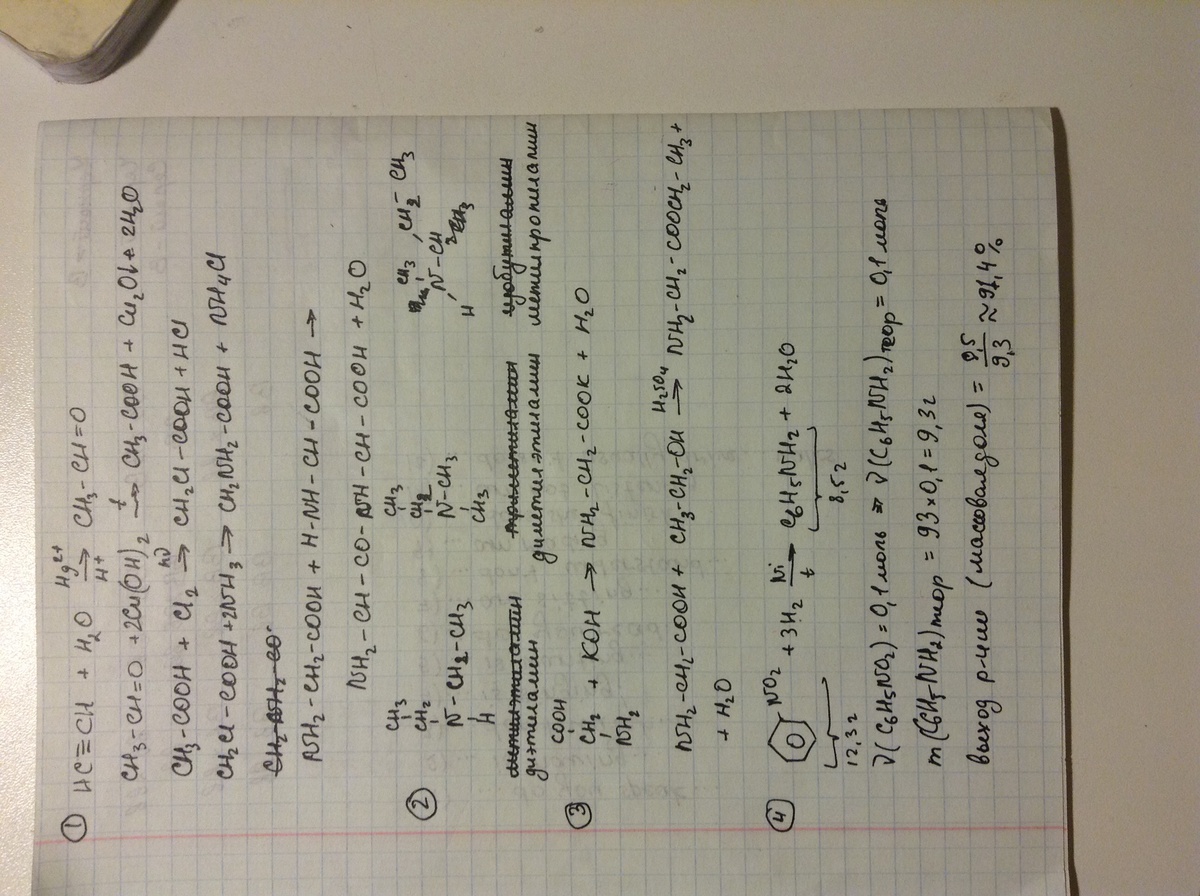 ① HC≡CH + H2O Hg2+ → H+ CH3-CH=O
CH3-CH=O + 2Cu(OH)2 t→ CH3-COOH + Cu2O↓ + 2H2O
CH3-COOH + Cl2 hν→ CH2Cl-COOH + HCl
CH2Cl-COOH + 2NH3 → CH2NH2-COOH + NH4Cl
CH2-NH2-CO-
NH2-CH2-COOH + H-NH-CH-COOH →
NH2-CH-CO-NH-CH-COOH + H2O
② CH3 CH3 CH3
CH2 CH2 CH2-CH3
N-CH2-CH3 N-CH3 N-CH
H CH3 H
метилэтиламин триметиламин изобутиламин
диэтиламин диметилэтиламин метилпропиламин
③ COOH
CH2 + KOH → NH2-CH2-COOK + H2O
NH2
NH2-CH2-COOH + CH3-CH2-OH H2SO4→ NH2-CH2-COOCH2-CH3 +
+ H2O
④ NO2 + 3H2 Ni→ t C6H5NH2 + 2H2O
12,3г 8,5г
ν(C6H5NO2) = 0,1 моль ⇒ ν(C6H5NH2)теор = 0,1 моль
m(C6H5NH2)теор = 93×0,1 = 9,3г
выход р-цию (массоваядоля) = 8,5/9,3 ≈ 91,4%